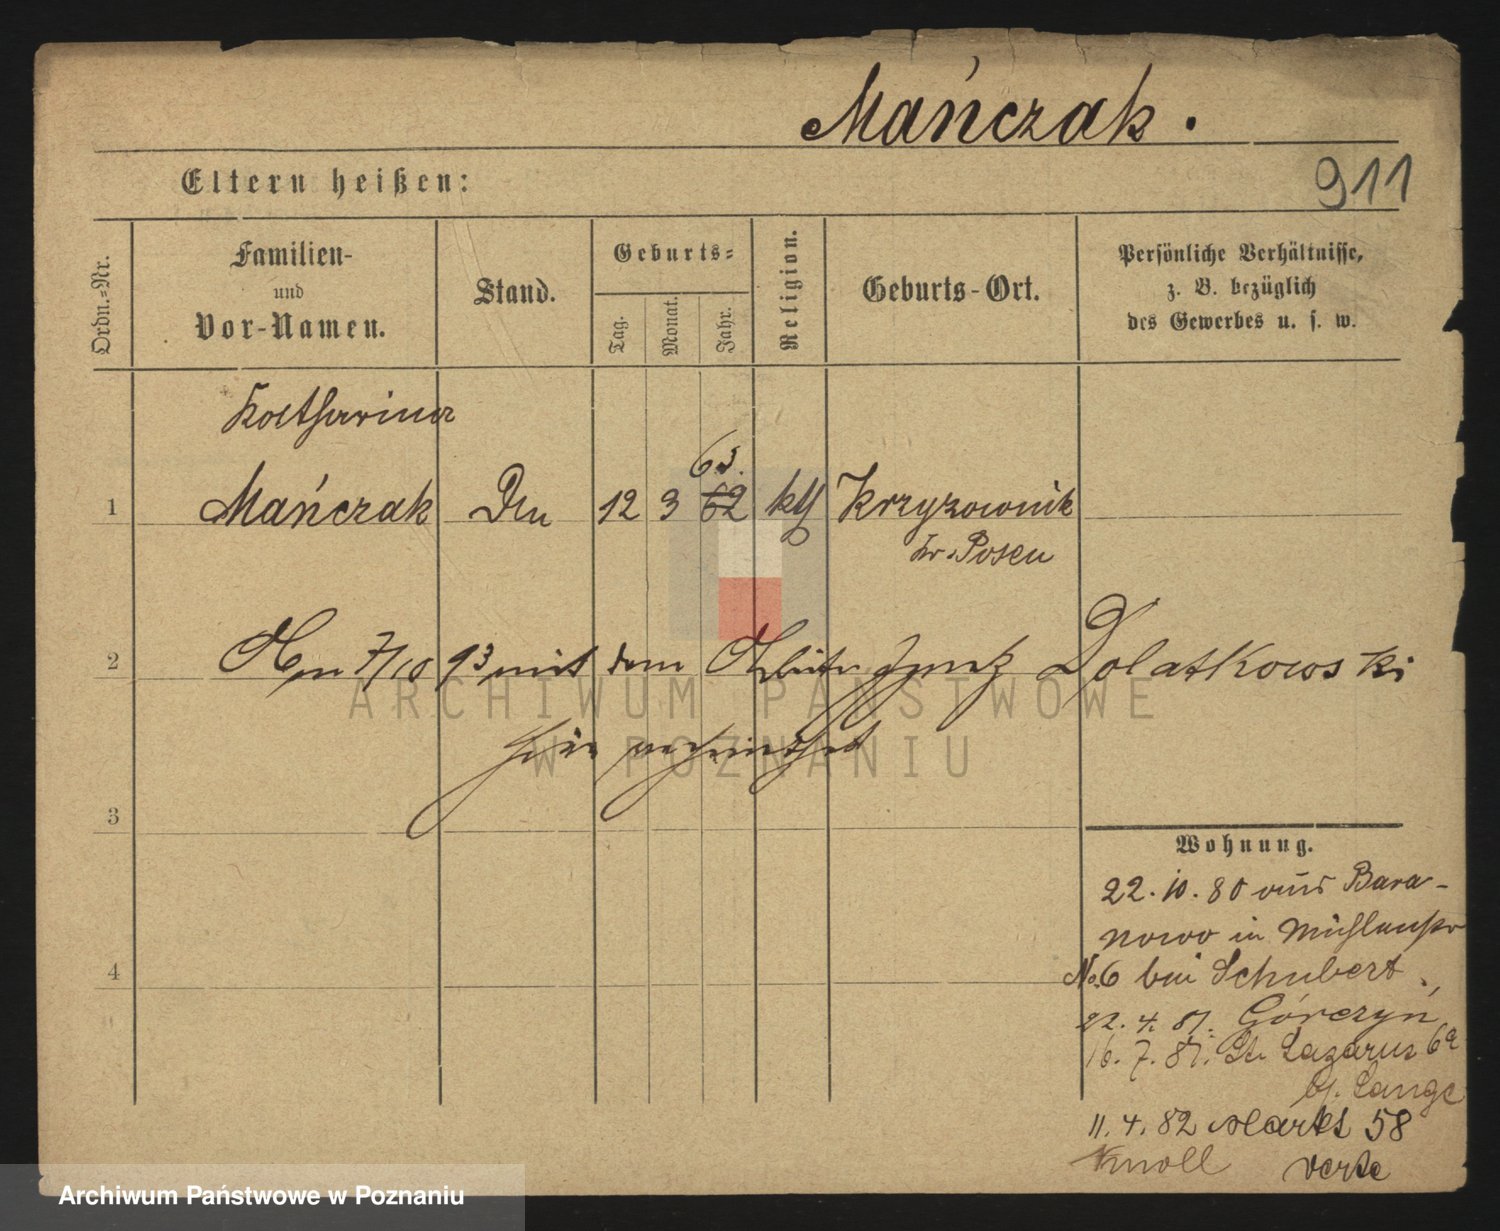 Mańczak.
911
Eltern heißen:
Ordn.-Nr.
Familien-
und
Vor-Namen.
Stand.
Geburts-
Tag.
Monat.
Jahr.
Religion.
Geburts-Ort.
Persönliche Verhältnisse,
z. B. bezüglich
des Gewerbes u. s. w.
Katharina
63.
1 Mańczak Dm 12 3 62 kth Krzyzownik
Kr. Posen
2 Am 7/10 93 mit dem Arbeiter Ignatz Dolatkowski
hier verheirathet
3
Wohnung.
22.10.80 aus Bara-
nowo in Mühlenstr
No. 6 bei Schubert
4
22.4.81. Górczyn
16.7.81. St. Lazarus 6a
b/. Lange
11.4.82 Markt 58
Knoll verte
ARCHIWUM PAŃSTWOWE
W POZNANIU
Archiwum Państwowe w Poznaniu